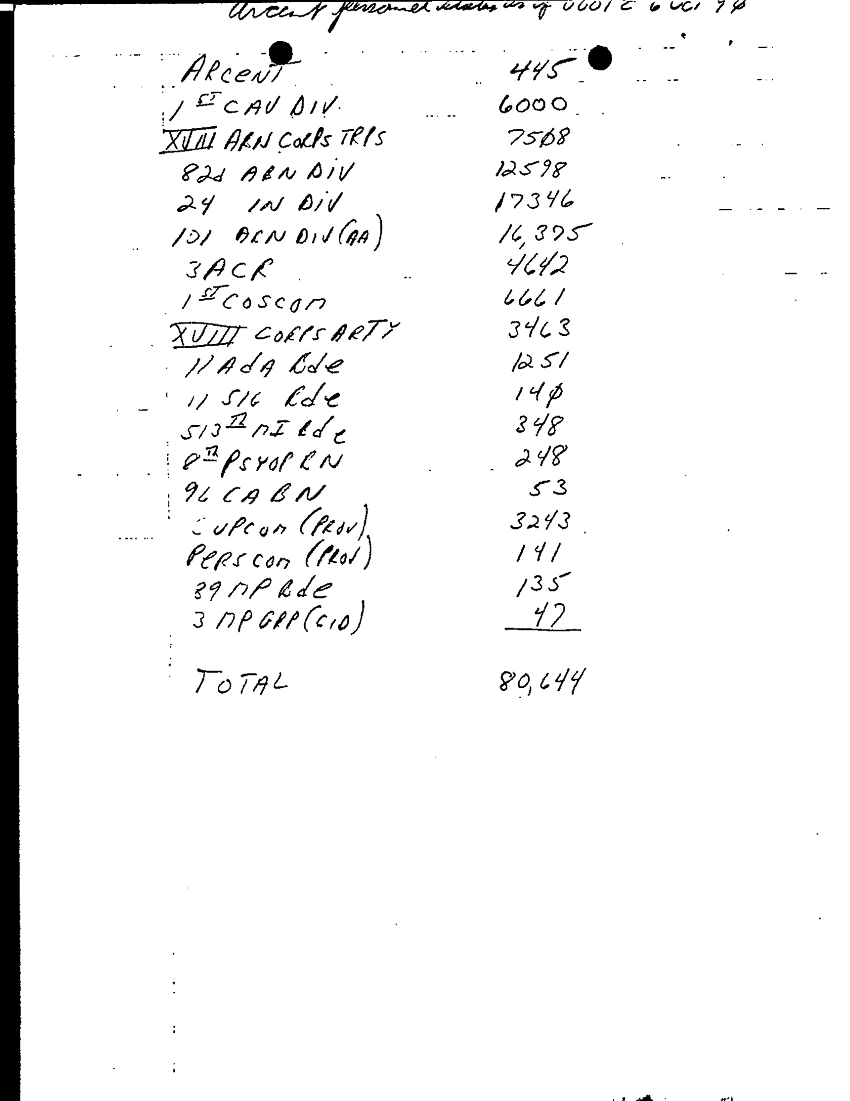 Arcent personnel status as of 0601 C 6 Oct 90
ARCENT 445
1ST CAV DIV. 6000
XVIII ABN CORPS TRPS 7508
82d ABN DIV 12598
24 IN DIV 17346
101 ABN DIV (AA) 16,375
3 ACR 4642
1ST COSCOM 6661
XVIII CORPS ARTY 3463
11 ADA Bde 1251
11 SIG Bde 140
513TH MI Bde 348
8TH PSYOP BN 248
96 CA BN 53
SUPCOM (PROV) 3243
PERSCOM (PROV) 141
89 MP Bde 135
3 MP GRP (CID) 47
TOTAL 80,644